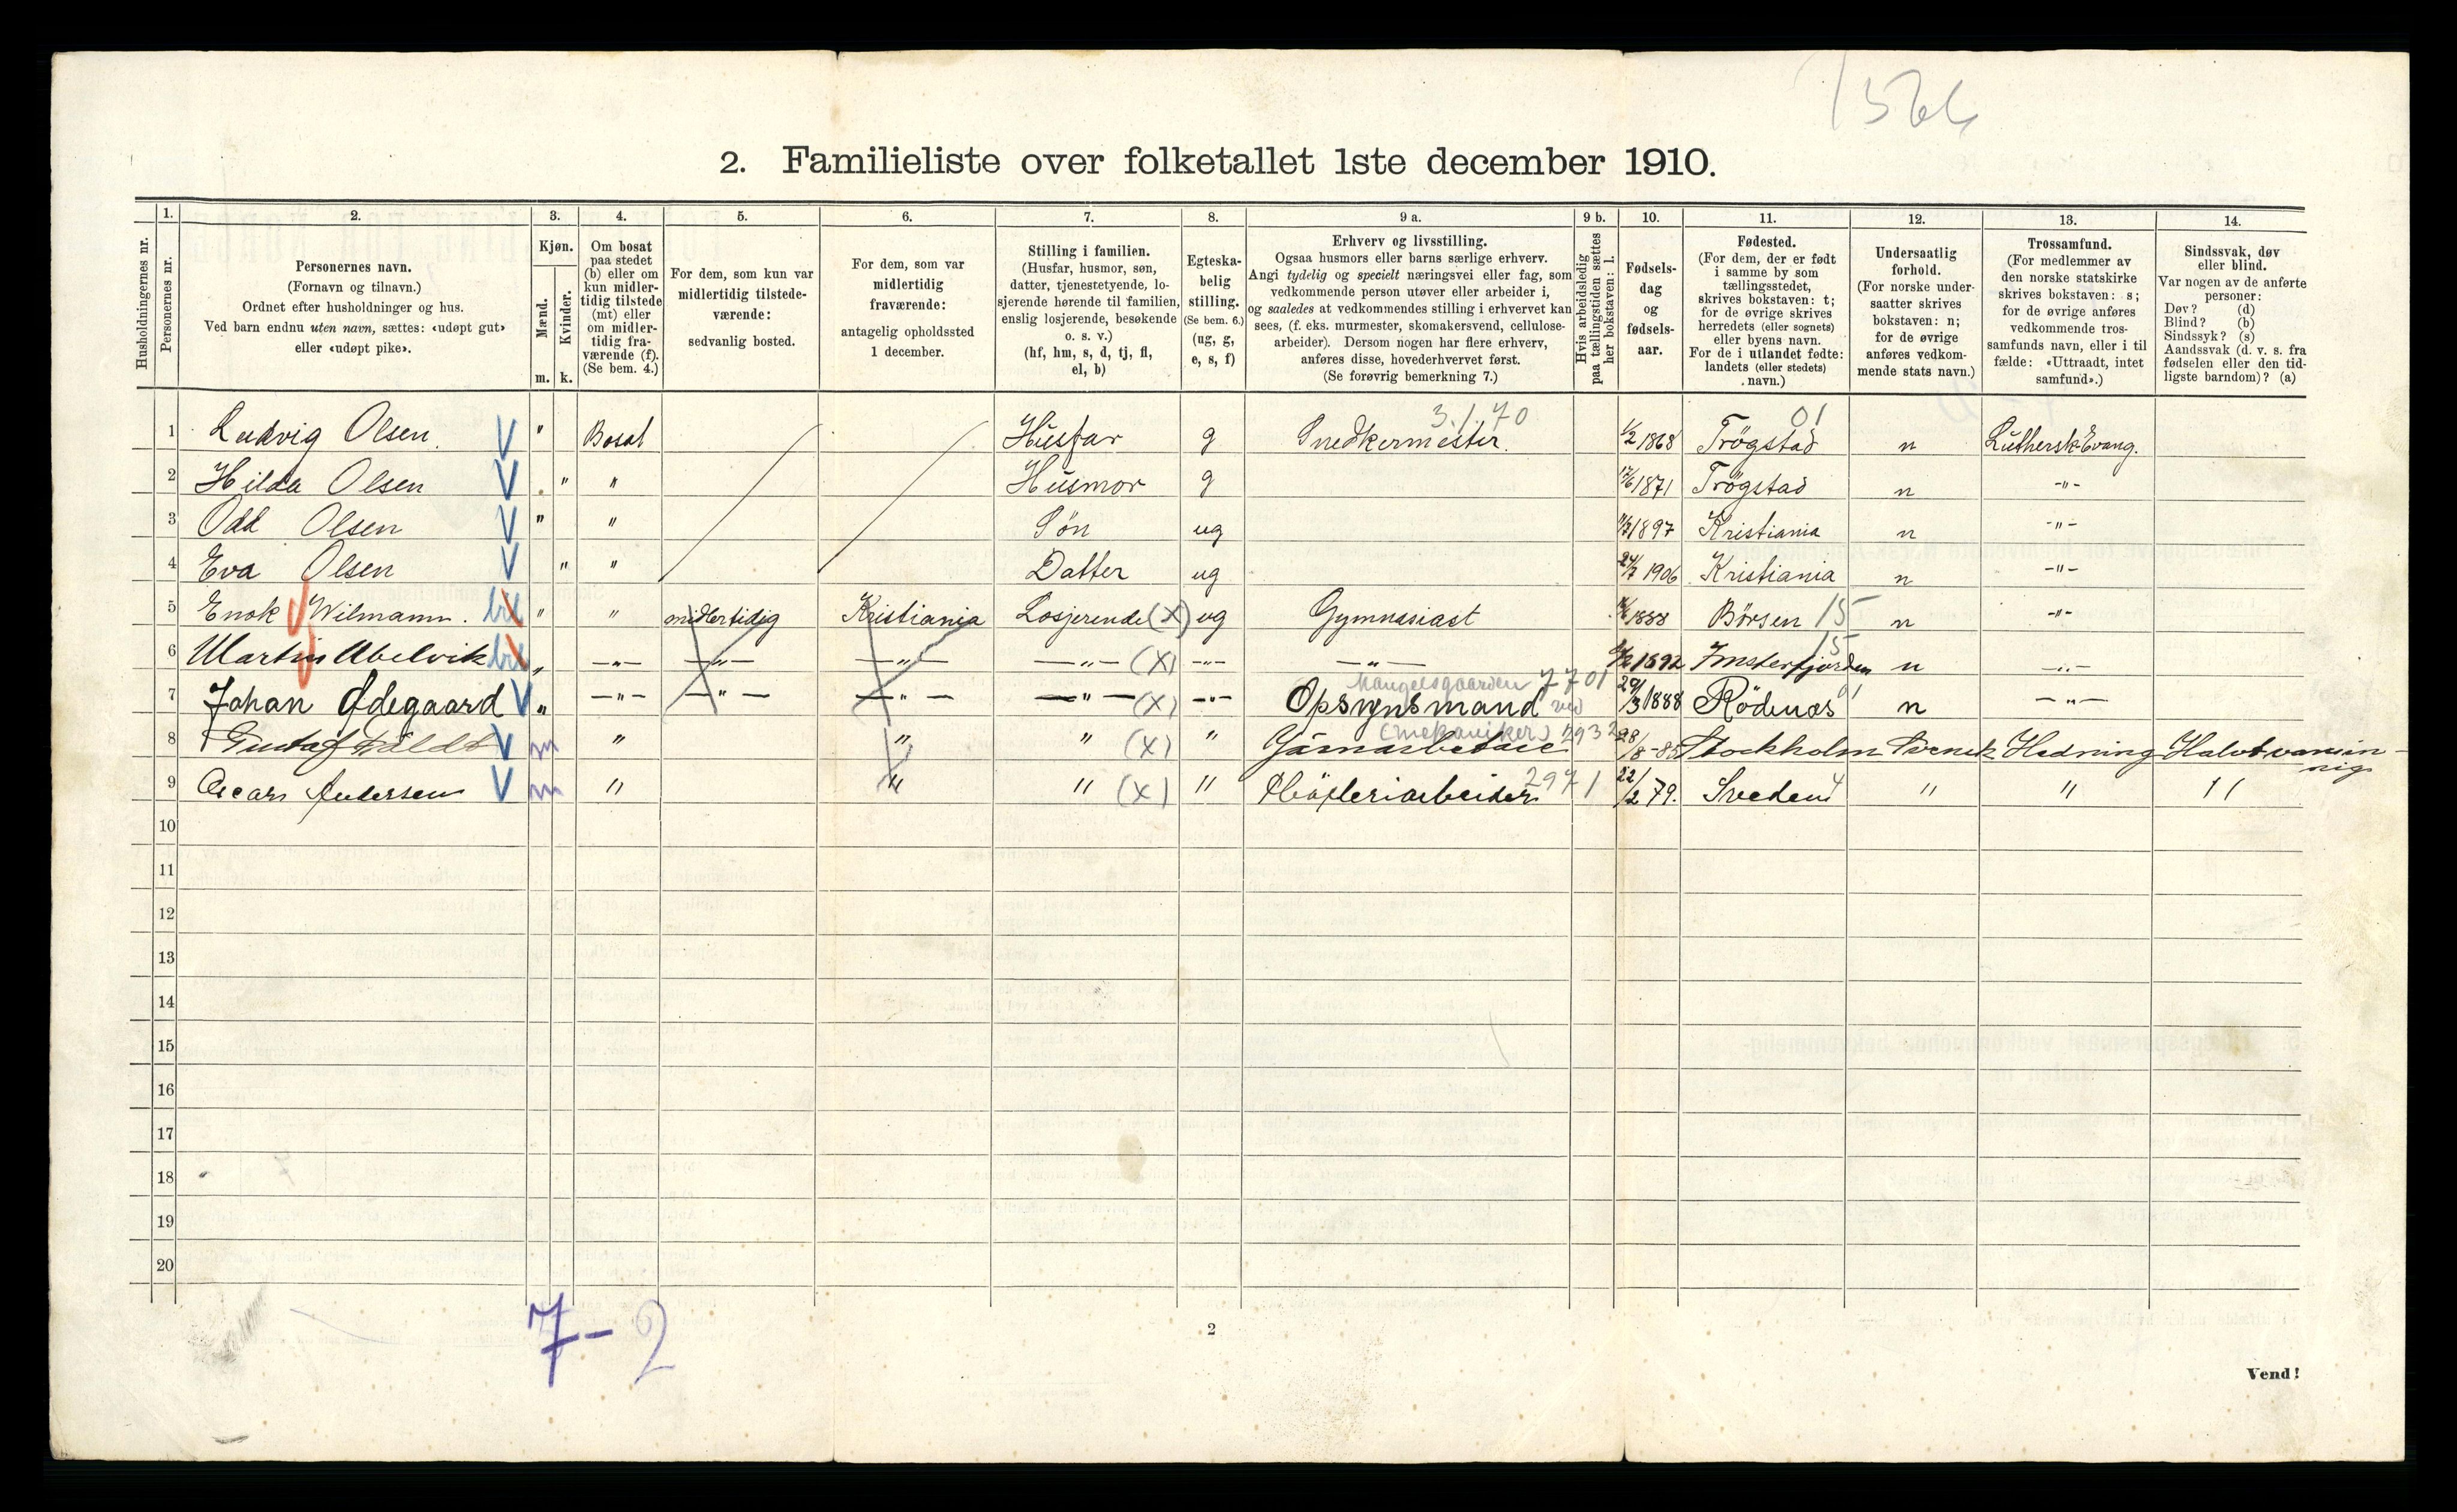 2. Familieliste over folketallet 1ste december 1910.
1. 2. 3. 4. 5. 6. 7. 8. 9 a. 9 b. 10. 11. 12. 13. 14.
Husholdningernes nr.
Personernes nr.
Personernes navn.
(Fornavn og tilnavn.)
Ordnet efter husholdninger og hus.
Ved barn endnu uten navn, sættes: «udøpt gut»
eller «udøpt pike».
Kjøn.
Mænd.
Kvinder.
m. k.
Om bosat
paa stedet
(b) eller om
kun midler-
tidig tilstede
(mt) eller
om midler-
tidig fra-
værende (f).
(Se bem. 4.)
For dem, som kun var
midlertidig tilstede-
værende:
sedvanlig bosted.
For dem, som var
midlertidig
fraværende:
antagelig opholdssted
1 december.
Stilling i familien.
(Husfar, husmor, søn,
datter, tjenestetyende, lo-
sjerende hørende til familien,
enslig losjerende, besøkende
o. s. v.)
(hf, hm, s, d, tj, fl,
el, b)
Egteska-
belig
stilling.
(Se bem. 6.)
(ug, g,
e, s, f)
Erhverv og livsstilling.
Ogsaa husmors eller barns særlige erhverv.
Angi tydelig og specielt næringsvei eller fag, som
vedkommende person utøver eller arbeider i,
og saaledes at vedkommendes stilling i erhvervet kan
sees, (f. eks. murmester, skomakersvend, cellulose-
arbeider). Dersom nogen har flere erhverv,
anføres disse, hovederhvervet først.
(Se forøvrig bemerkning 7.)
Hvis arbeidsledig
paa tællingstiden sættes
her bokstaven: l.
Fødsels-
dag
og
fødsels-
aar.
Fødested.
(For dem, der er født
i samme by som
tællingsstedet,
skrives bokstaven: t;
for de øvrige skrives
herredets (eller sognets)
eller byens navn.
For de i utlandet fødte:
landets (eller stedets)
navn.)
Undersaatlig
forhold.
(For norske under-
saatter skrives
bokstaven: n;
for de øvrige
anføres vedkom-
mende stats navn.)
Trossamfund.
(For medlemmer av
den norske statskirke
skrives bokstaven: s;
for de øvrige anføres
vedkommende tros-
samfunds navn, eller i til
fælde: «Uttraadt, intet
samfund».)
Sindssvak, døv
eller blind.
Var nogen av de anførte
personer:
Døv? (d)
Blind? (b)
Sindssyk? (s)
Aandssvak (d. v. s. fra
fødselen eller den tid-
ligste barndom)? (a)
3.1.70 01
1 Ludvig Olsen. V " Bosat Husfar g Snedkermester. 1/2 1868 Trögstad n Luthersk-Evang.
2 Hilda Olsen V " " Husmor g 17/6 1871 Trögstad n -"-
3 Odd Olsen V " " Sön ug 1897 Kristiania n -"-
4 Eva Olsen V " " Datter ug 24/7 1906 Kristiania n -"-
5 Enok Wilmann. " " midlertidig Kristiania Losjerende (X) ug Gymnasiast 1888 Börsen 15 n -"-
6 Martin Abelvik " -"- -"- -"- -"- (X) -"- -"- 1892 n -"-
15
Mangelsgaarden 7701
7 Johan Ødegaard V " -"- -"- -"- -"- (X) -"- Opsynsmand ved 29/3 1888 Rödenæs n -"-
(mekaniker) 2932
8 Gustaf V m " " " (X) " 28/8-85 Stockholm Svensk Hedning Halvt vansin-
nig
2971
9 Oscar Andersen V m " " " (X) " Höfleriarbeider 22/2 79. Sveden " " "
10
11
12
13
14
15
16
17
18
19
20
7-2
2
Vend!